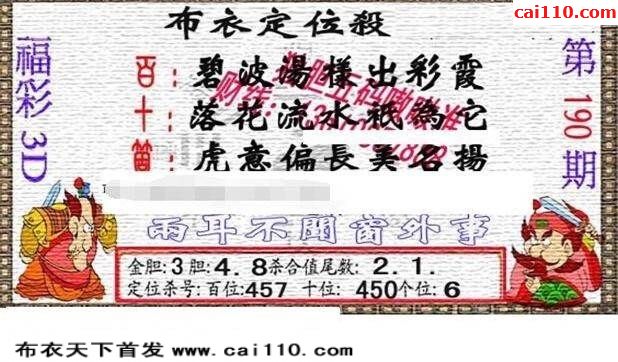 cai110.com
布衣定位殺
福彩3D
第190期
百：碧波湯樣出彩霞
十：落花流水衹為它
個：虎意偏長美名揚
兩耳不聞窗外事
金胆:3胆:4.8杀合值尾数:2.1.
定位杀号:百位:457 十位:450个位:6
布衣天下首发 www.cai110.com